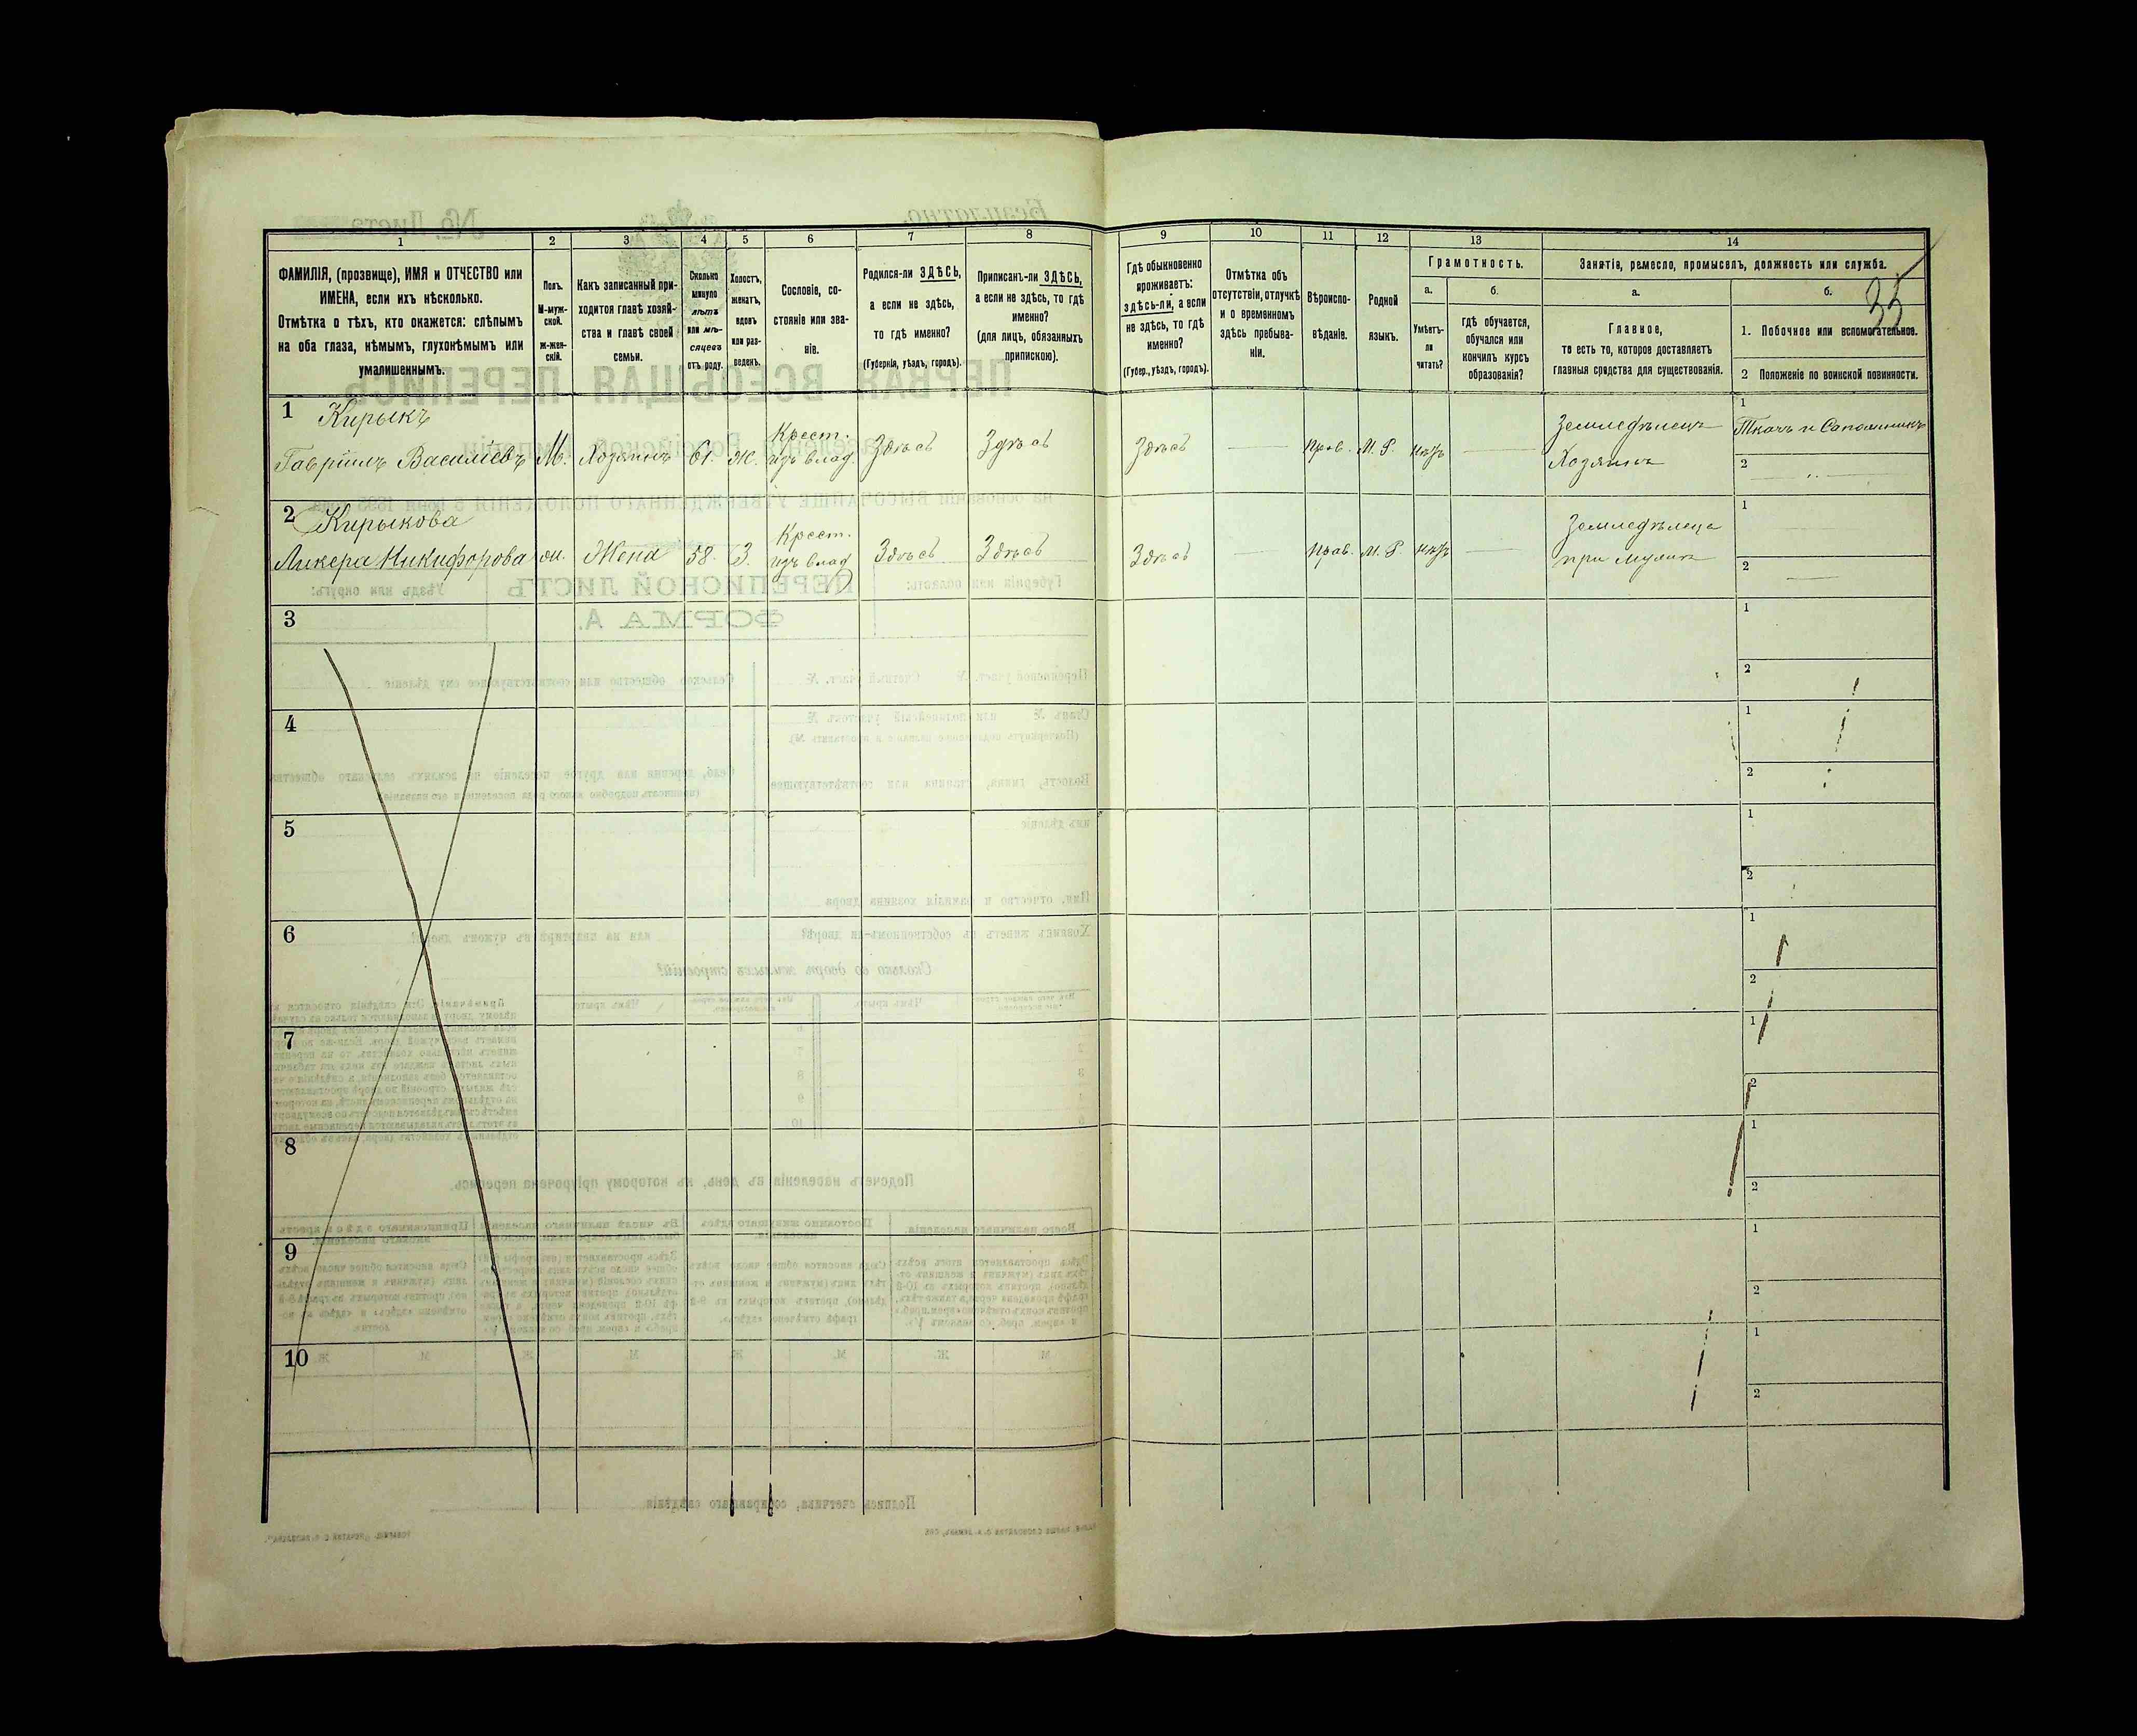 33
1
2
3
4
5
6
7
8
9
10
11
12
13
14
ФАМИЛІЯ, (прозвище), ИМЯ и ОТЧЕСТВО или
ИМЕНА, если ихъ нѣсколько.
Отмѣтка о тѣхъ, кто окажется: слѣпымъ
на оба глаза, нѣмымъ, глухонѣмымъ или
умалишеннымъ.
Полъ.
М-муж-
ской.
ж-жен-
скій.
Какъ записанный при-
ходится главѣ хозяй-
ства и главѣ своей
семьи.
Сколько
минуло
лѣтъ
или мѣ-
сяцевъ
отъ роду.
Холостъ,
женатъ,
вдовъ
или раз-
веденъ.
Сословіе, со-
стояніе или зва-
ніе.
Родился-ли ЗДѢСЬ,
а если не здѣсь,
то гдѣ именно?
(Губернія, уѣздъ, городъ).
Приписанъ-ли ЗДѢСЬ,
а если не здѣсь, то гдѣ
именно?
(для лицъ, обязанныхъ
припискою).
Гдѣ обыкновенно
проживаетъ:
здѣсь-ли, а если
не здѣсь, то гдѣ
именно?
(Губер., уѣздъ, городъ).
Отмѣтка объ
отсутствіи, отлучкѣ
и о временномъ
здѣсь пребыва-
ніи.
Вѣроиспо-
вѣданіе.
Родной
языкъ.
Грамотность.
а.
Умѣетъ-
ли
читать?
б.
гдѣ обучается,
обучался или
кончилъ курсъ
образованія?
Занятіе, ремесло, промыселъ, должность или служба.
а.
Главное,
то есть то, которое доставляетъ
главныя средства для существованія.
б.
1. Побочное или вспомогательное.
2 Положеніе по воинской повинности.
1 Кирыкъ
Гавріилъ Василіевъ М. Хозяинъ 61. Ж. Крест. изъ влад. Здѣсь Здѣсь Здѣсь — Прав. М. Р. нѣтъ — Земледѣлецъ Хозяинъ
1 Ткачъ и
2
2 Кирыкова
Никифорова Жена 58. З. Крест. изъ влад. Здѣсь Здѣсь Здѣсь — Прав. М. Р. нѣтъ — при мужѣ
1
2
3
1
2
4
1
2
5
1
2
6
1
2
7
1
2
8
1
2
9
1
2
10
1
2